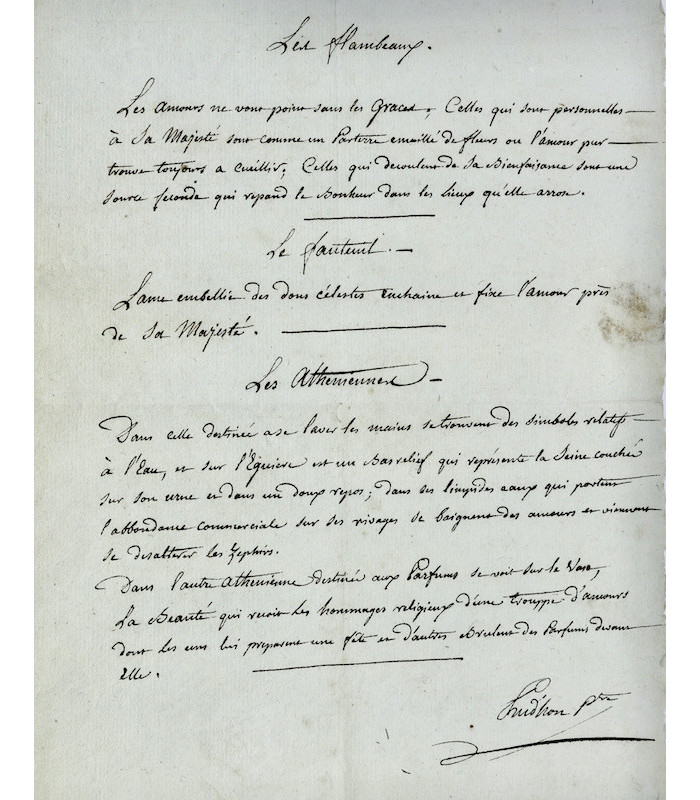 Les flambeaux.
Les Amours ne vont point sans les Graces; Celles qui sont personnelles
à Sa Majesté sont comme un Parterre emaillé de fleurs ou l'amour pur
trouve toujours a cuillir; Celles qui decoulent de Sa Bienfaisance sont une
source feconde qui repand le Bonheur dans les lieux qu'elle arrose.
Le fauteuil.
L'ame embellie des dons célestes enchaine et fixe l'amour près
de Sa Majesté.
Les Atheniennes
Dans celle destinée a se laver les mains se trouvent des simboles relatifs
à l'Eau, et sur l'Eguiere est un Basrelief qui représente la Seine couchée
sur son urne et dans un doux repos; dans ses liquides eaux qui portent
l'abbondance commerciale sur ses rivages se baignent des amours et viennent
se desalterer les Zephirs.
Dans l'autre Athenienne destinée aux Parfums se voit sur le Vase,
La Beauté qui reçoit les hommages religieux d'une trouppe d'amours
dont les uns lui preparent une fête et d'autres Brulent des Parfums devant
Elle.
Prud'hon ptre